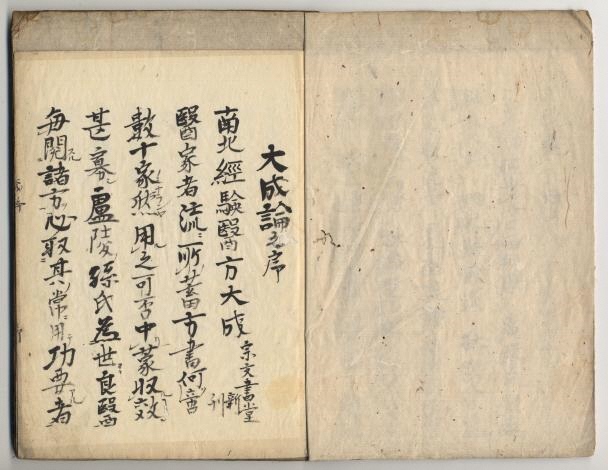 大成論之序
南北經驗醫方大成 宗文書堂新刊
醫家者流所蓄方書何啻
數十家然用之可否中蒙收效
甚寡盧陵孫氏為世良醫
每閱諸方必取其常用功要者